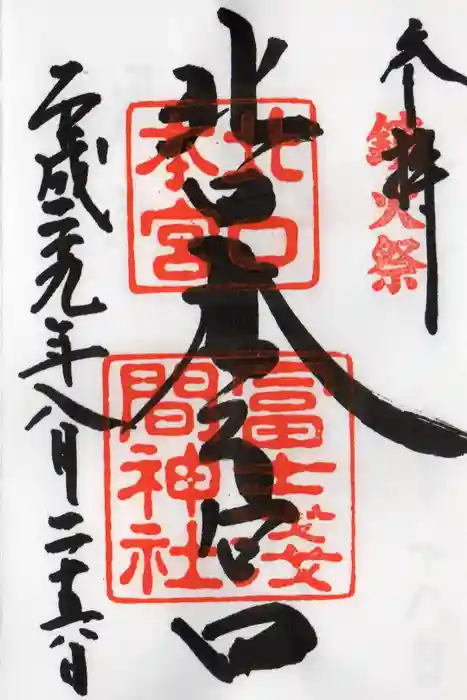 参拝
鎮火祭
北口本宮
北口
本宮
冨士浅
間神社
平成二十九年八月二十六日